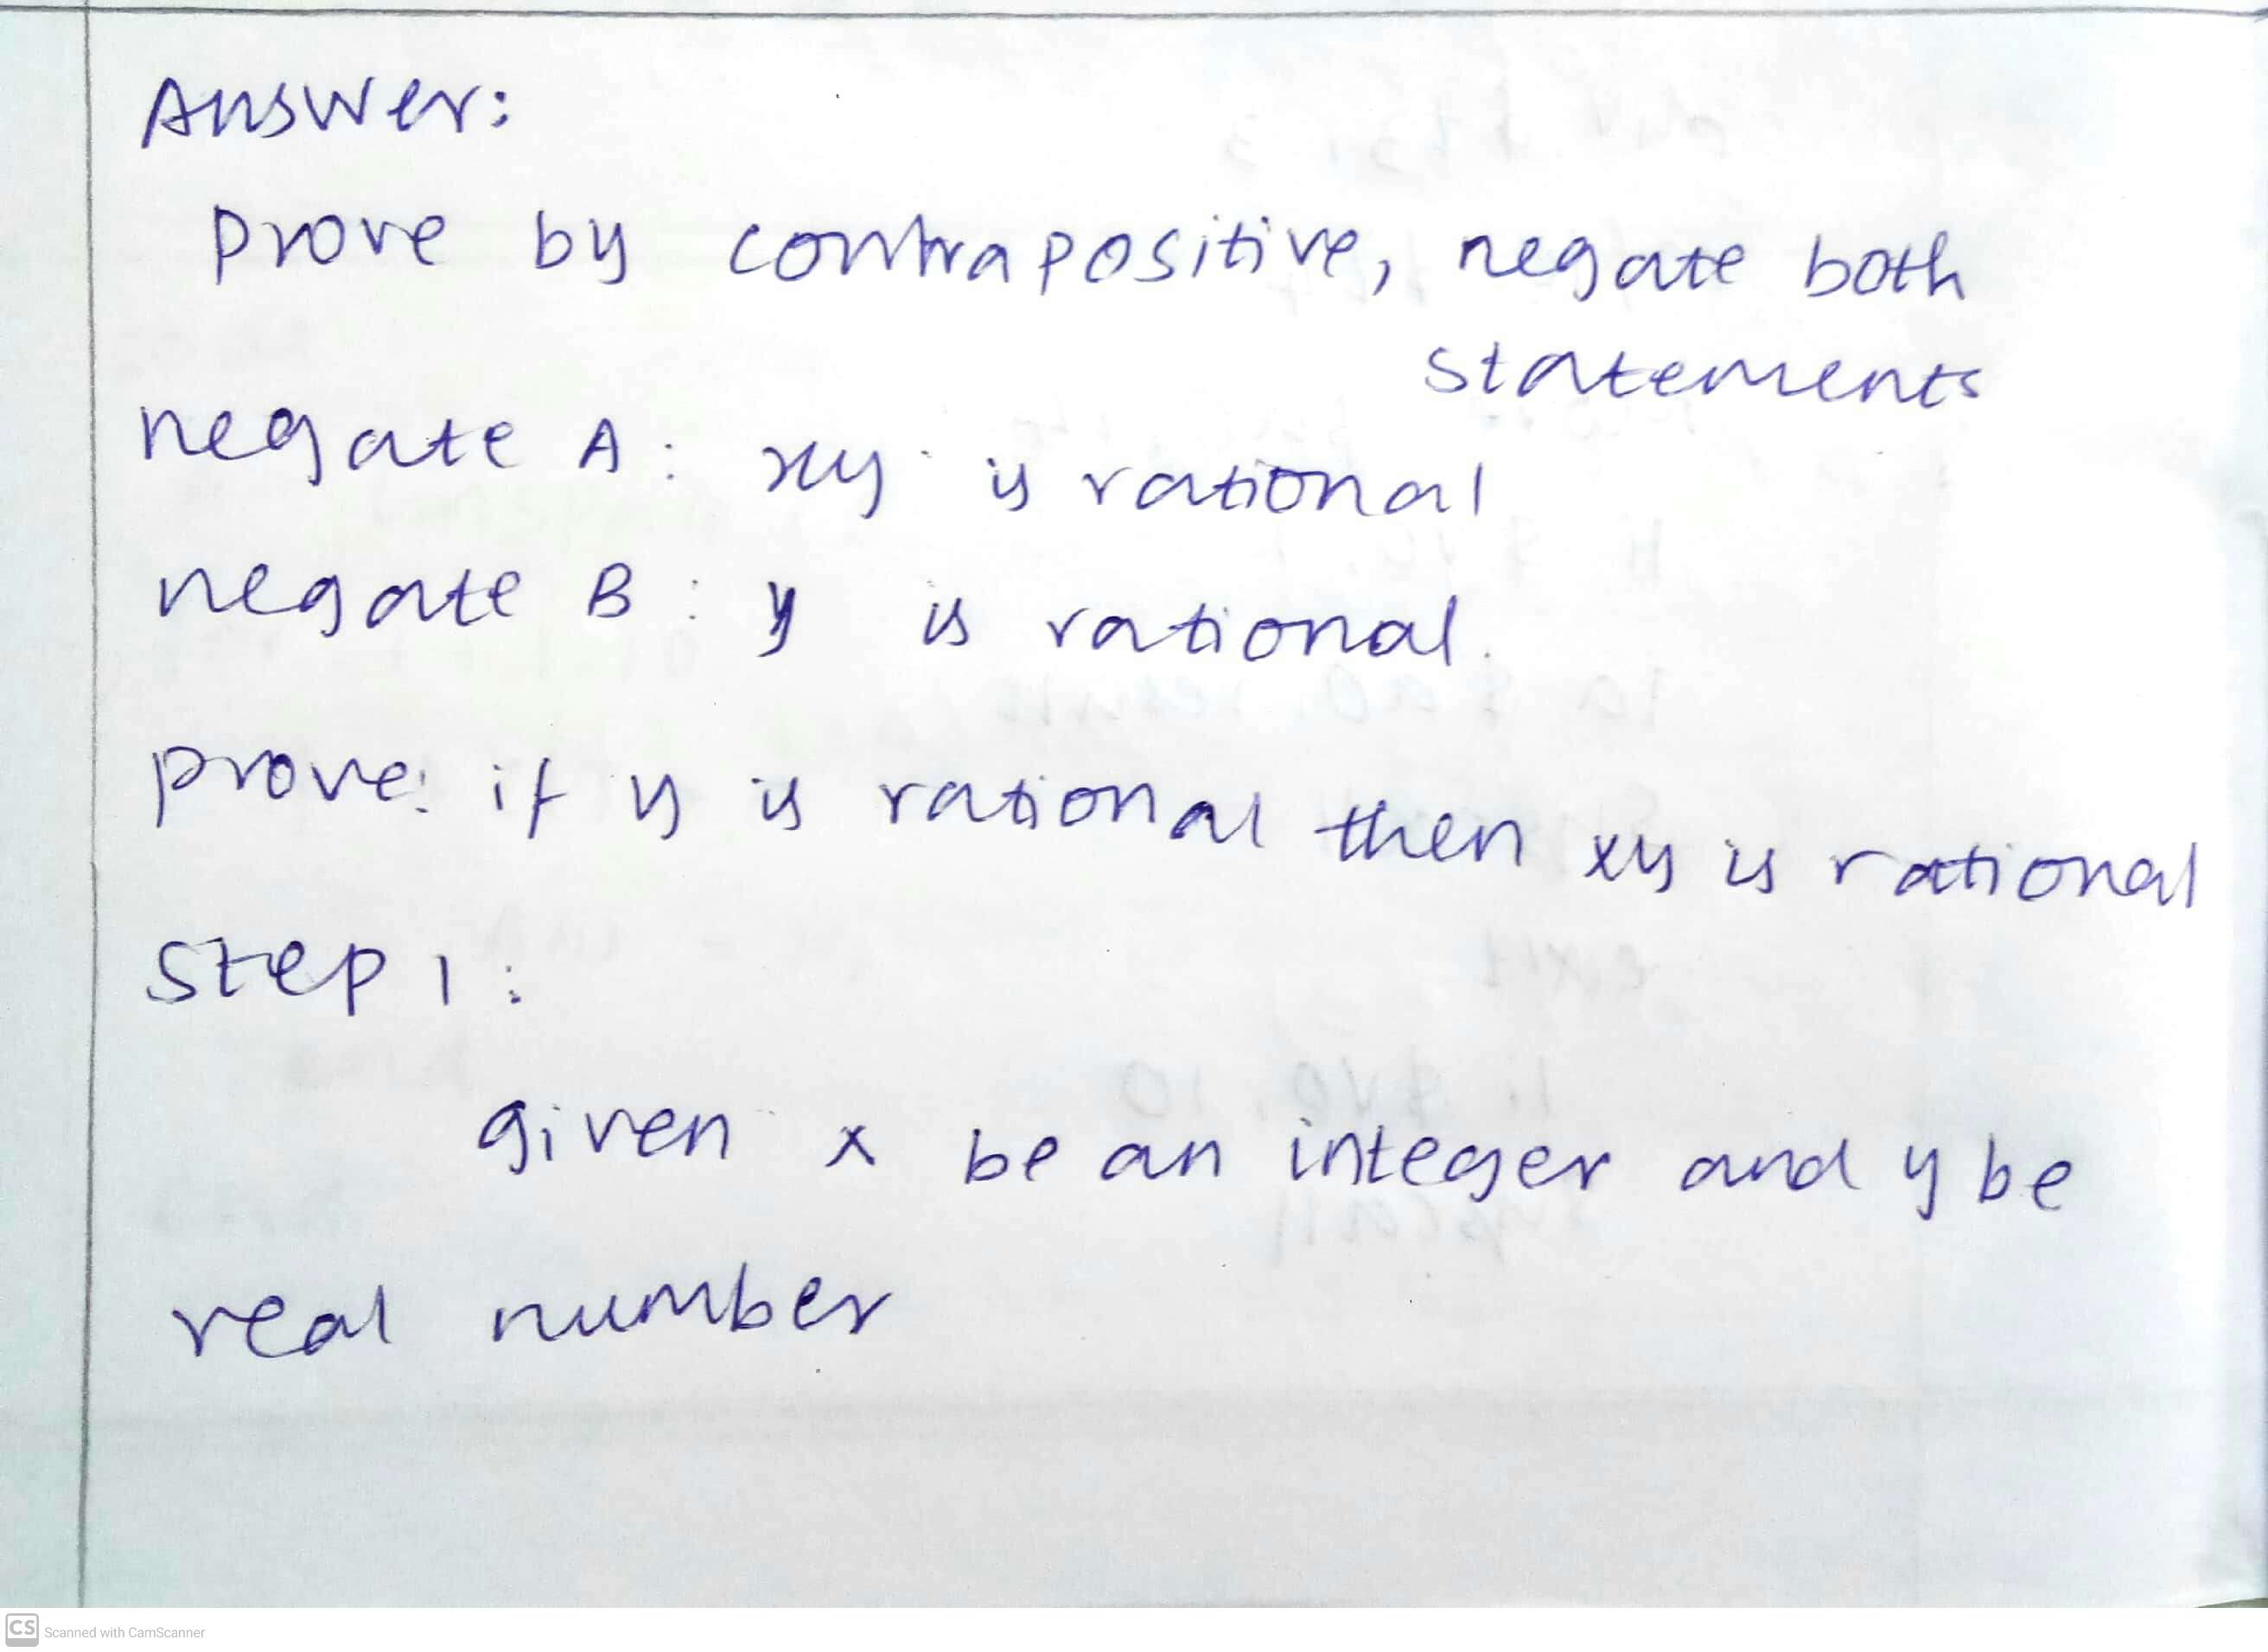 Answer:
prove by contrapositive, negate both
statements
negate A: xy is rational
negate B: y is rational.
prove: if y is rational then xy is rational
step 1:
given x be an integer and y be
real number
CS Scanned with CamScanner